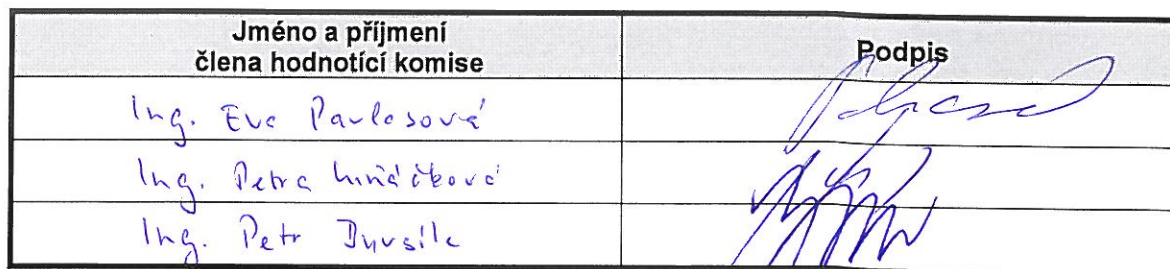 Jméno a příjmení
člena hodnotící komise
Podpis
Ing. Eva Pavlasová
Ing. Petra
Ing. Petr